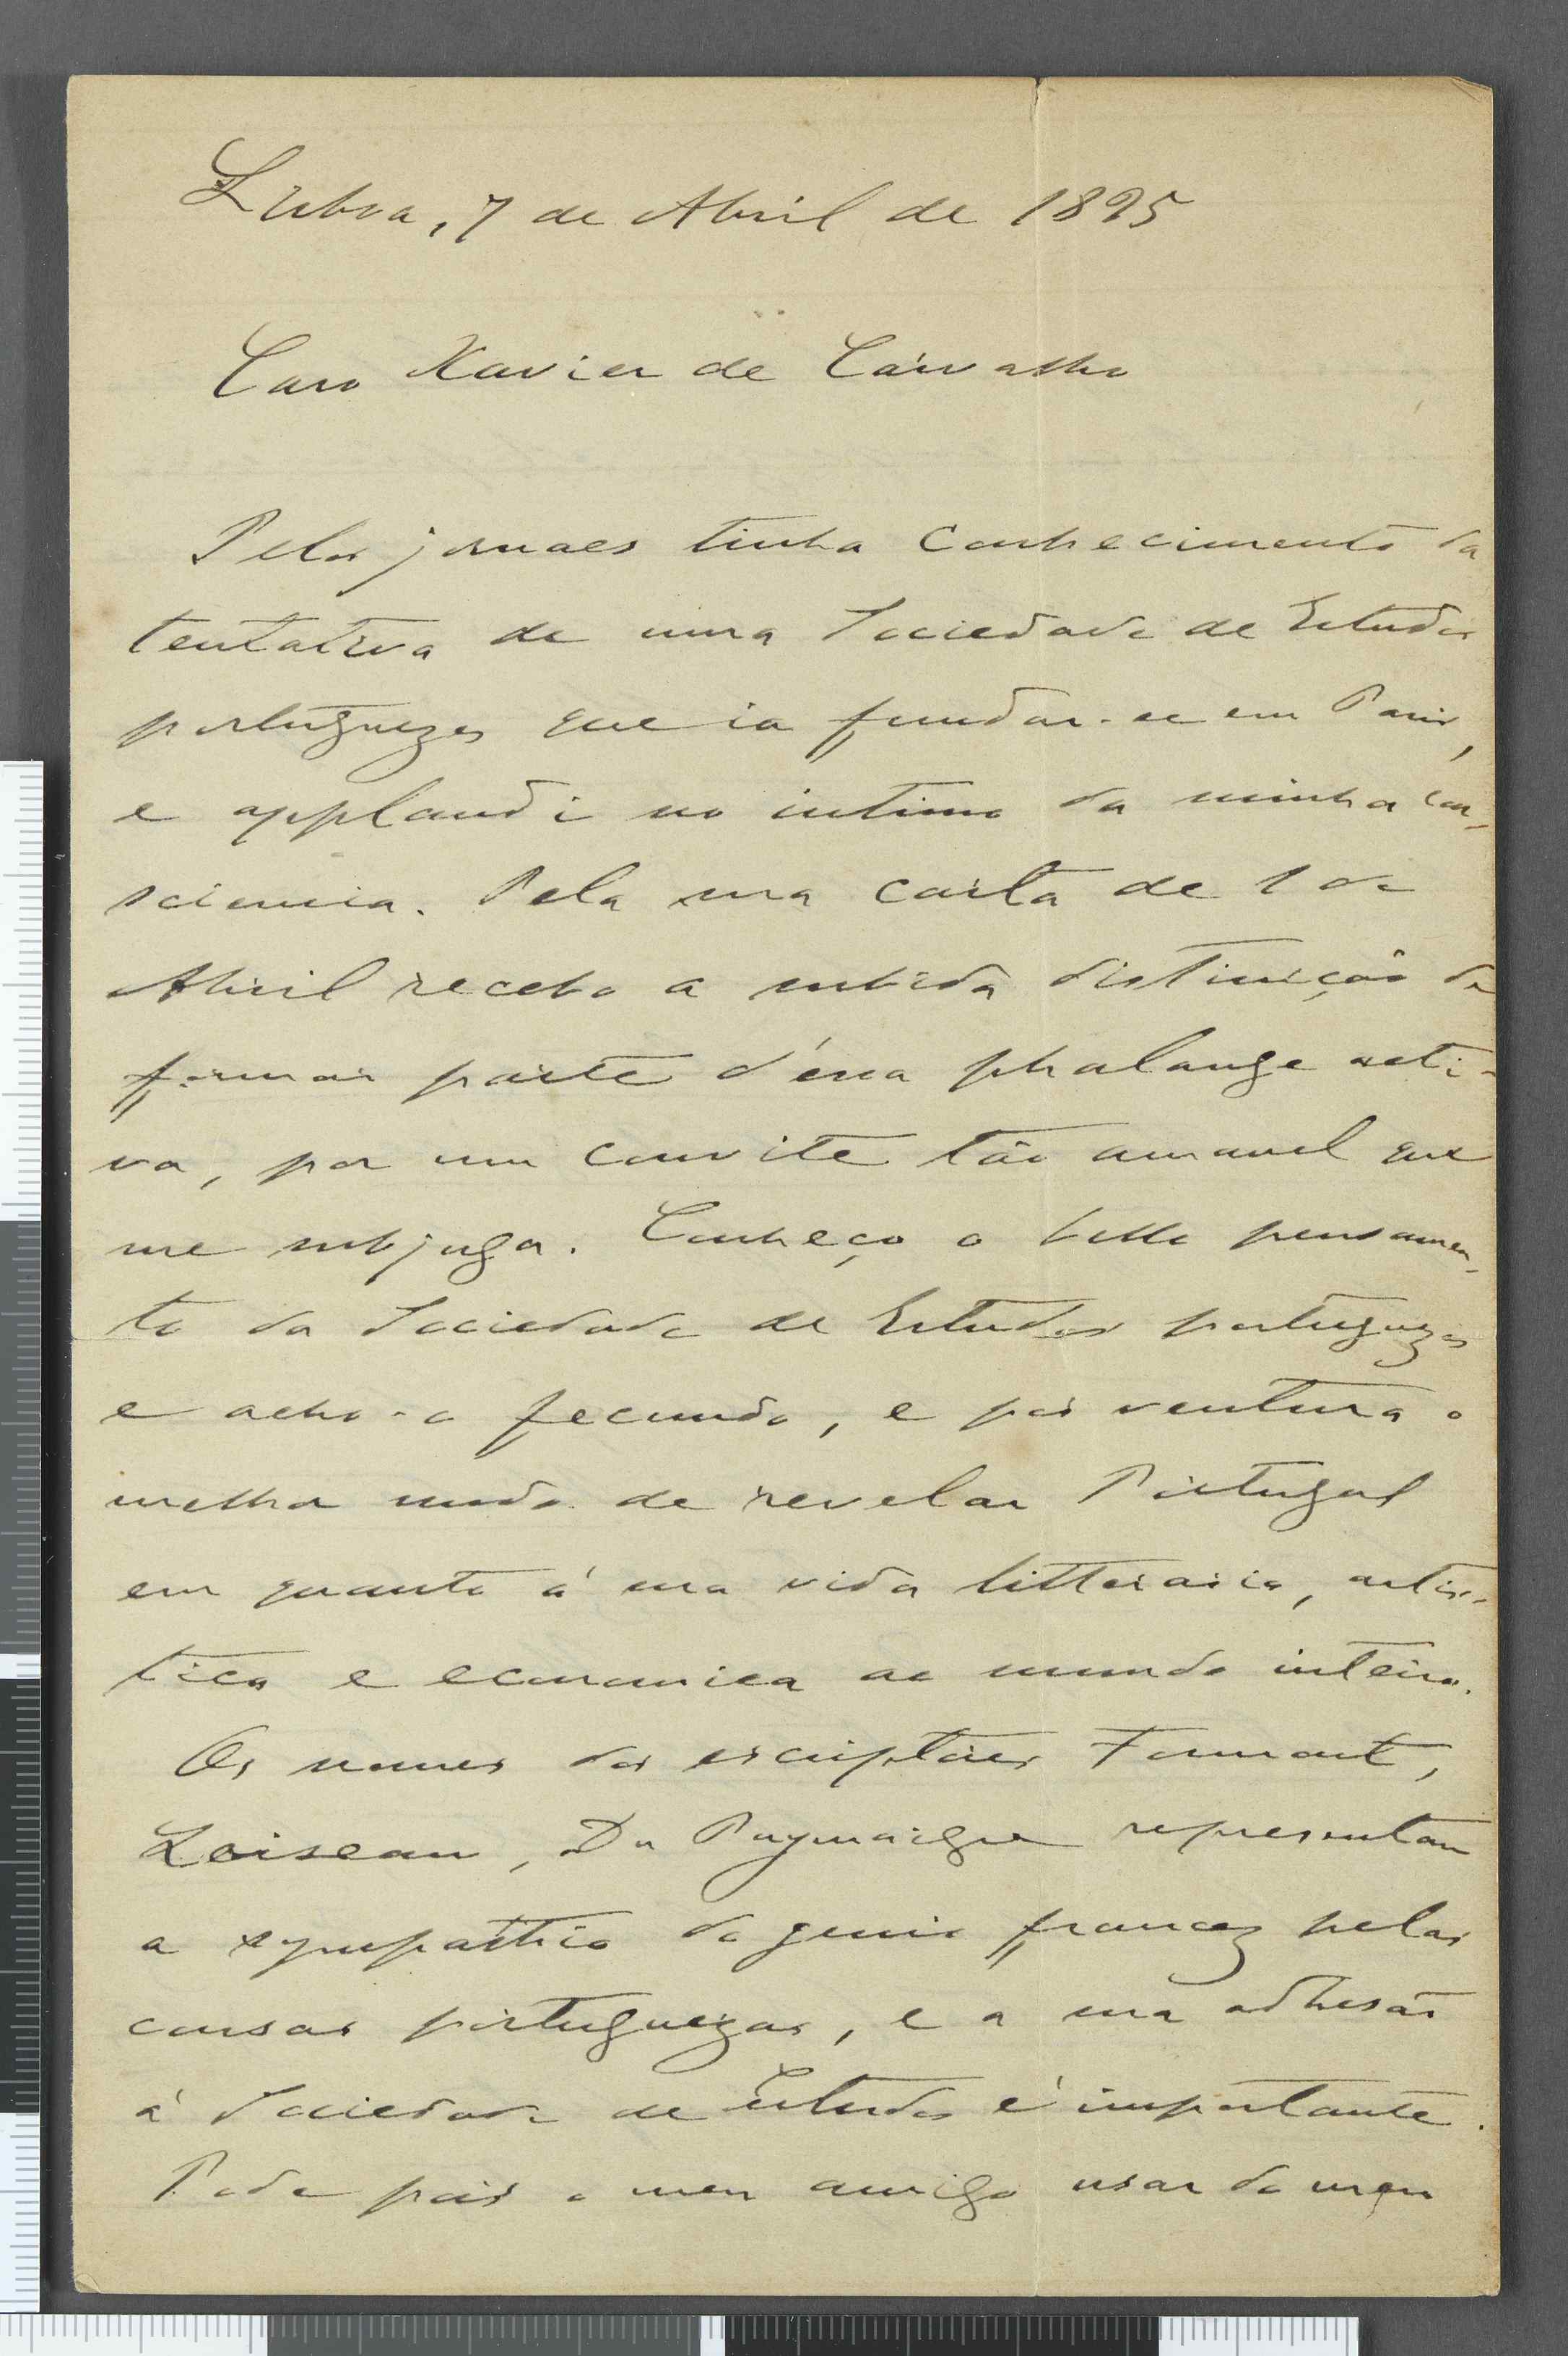 Lisboa, 7 de Abril de 1895
Caro Xavier de Carvalho
Pelos jornaes tinha conhecimento da
tentativa de uma Sociedade de Estudos
portuguezes que ia fundar-se em Paris,
e applaudi no intimo da minha con-
sciencia. Pela sua carta de 1 de
Abril recebo a subida distincção de
formar parte d'essa phalange acti-
va, por um convite tão amavel que
me subjuga. Conheço o bello pensamen-
to da Sociedade de Estudos portuguezes
e acho-o fecundo, e por ventura o
melhor modo de revelar Portugal
em quanto á sua vida litteraria, artis-
tica e economica ao mundo inteiro.
Os nomes dos escriptores Formont,
Loiseau, Du Puymaigre representam
a sympathia do genio francez pelas
cousas portuguezas, e a sua adhesão
á Sociedade de Estudos é importante.
Pode pois o meu amigo usar do meu